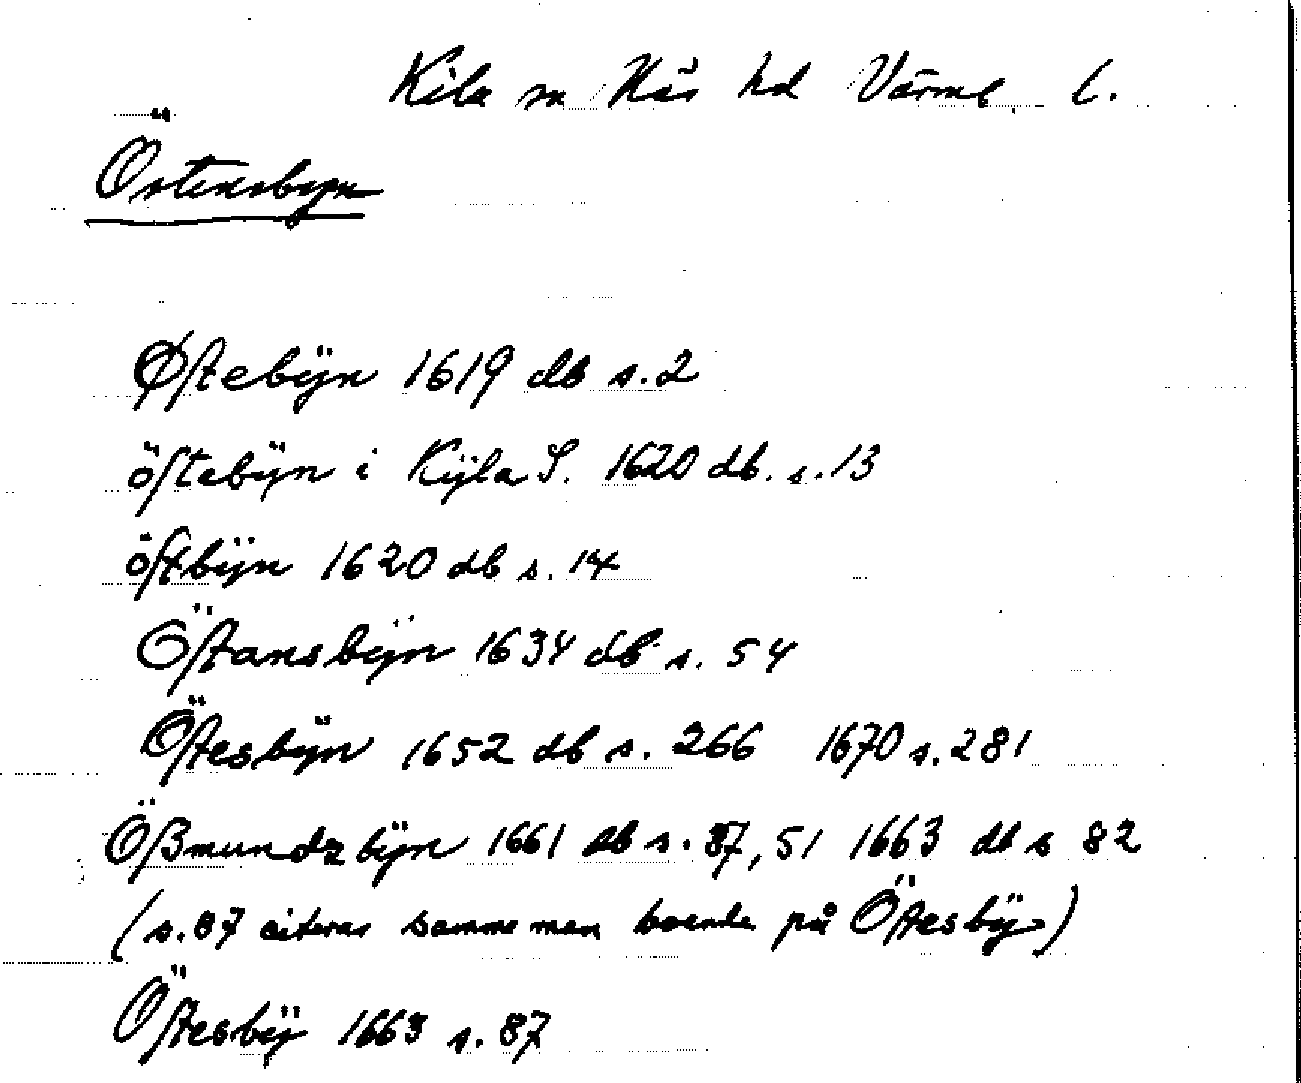 Kila sn Näs hd Värml. l.
Östensbyn
Øſtebÿn 1619 db s. 2
öſtebÿn i Kÿla S. 1620 db. s. 13
öſtbÿn 1620 db s. 14
Öſtansbÿn 1634 db s. 54
Öſtesbÿn 1652 db s. 266 1670 s. 281
Ößmundzbÿn 1661 db s. 87, 51 1663 db s 82
(s. 87 citeras samme man boende på Öſtesbÿ)
Öſtesbÿ 1663 s. 87